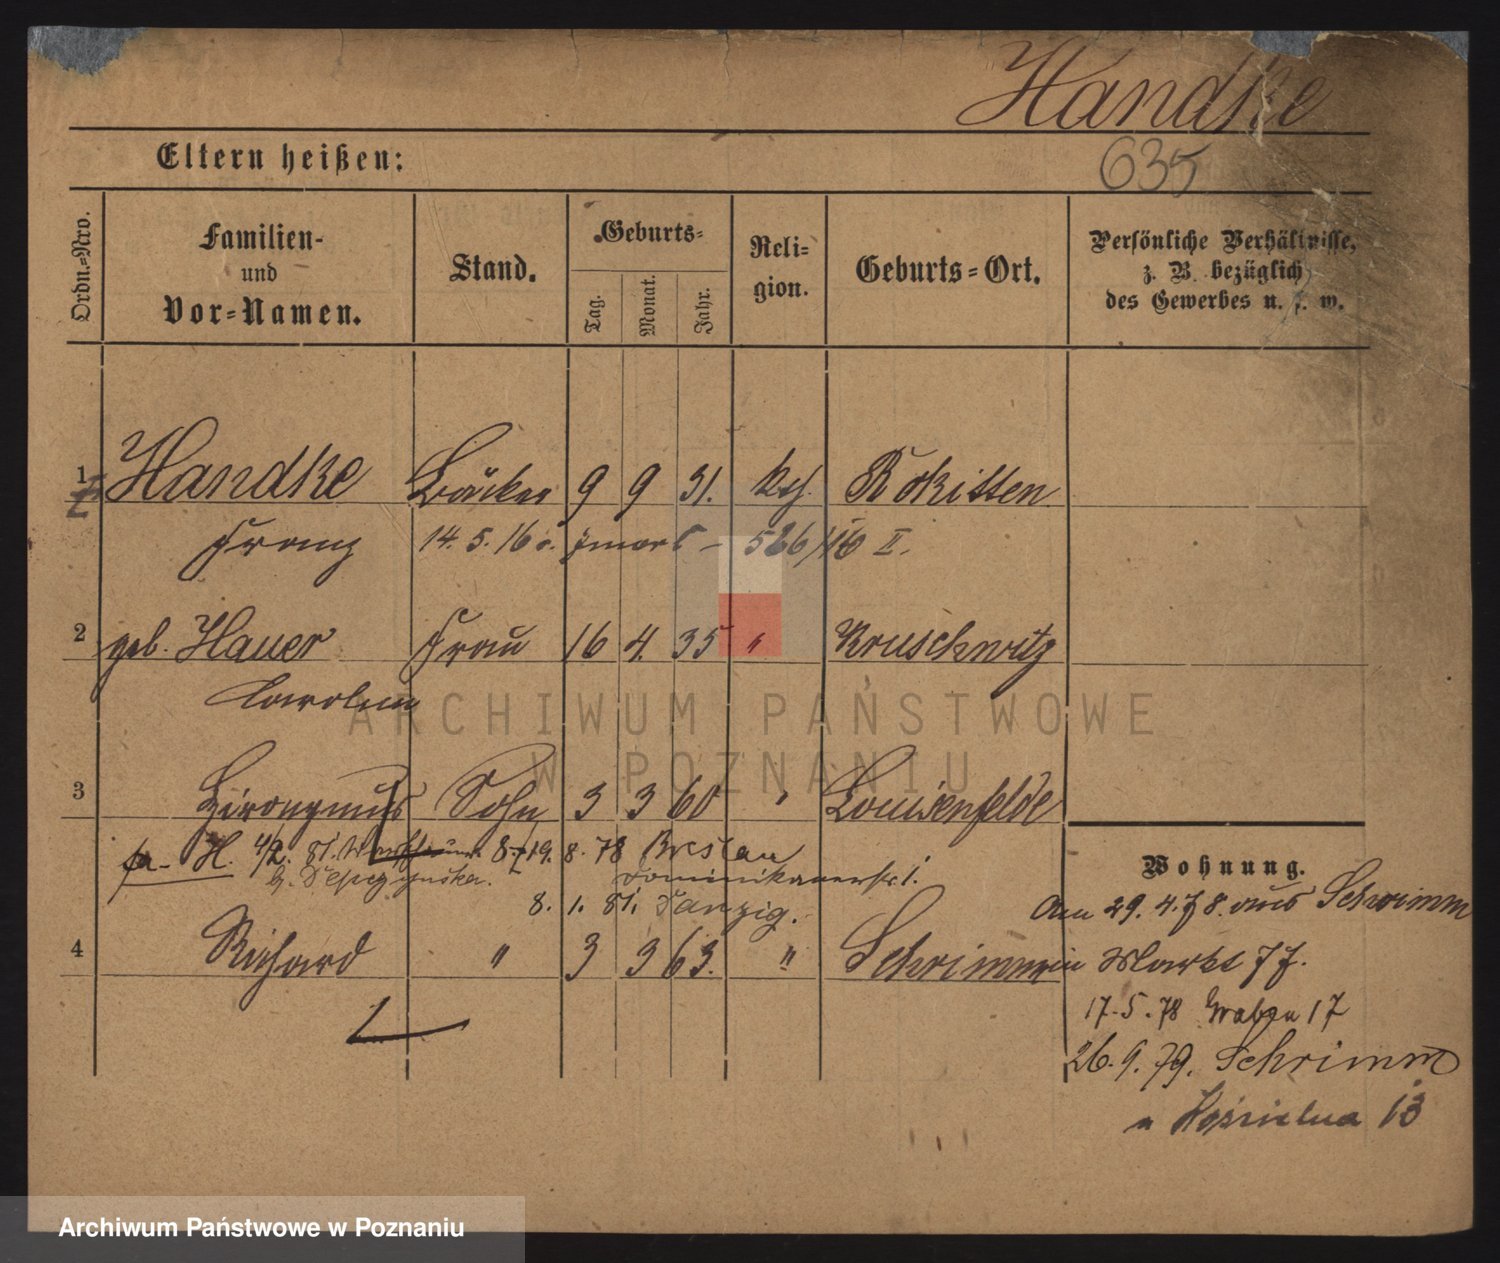 Handke
635
Eltern heißen:
Ordn.=Nro.
Familien-
und
Vor=Namen.
Stand.
Geburts=
Tag.
Monat.
Jahr.
Reli=
gion.
Geburts=Ort.
Persönliche Verhältnisse,
z. B. bezüglich
des Gewerbes u. s. w.
1 Handke Bäcker 9 9 31. kth. Rokitten
Franz 14. 5. 16 526/16 II.
2 geb. Hauer Frau 16 4. 35 " Kruschwitz
Carolina
ARCHIWUM PAŃSTWOWE
W POZNANIU
3 Hieronymus Sohn 3 3 60 " Louisenfelde
H. 4/2. 81. 8. 78 Breslau
Dominikanerstr. 1.
8. 1. 81. Danzig.
4 Richard " 3 3 63. " Schrimm
Wohnung.
Am 29. 4. 78. aus Schrimm
in Markt 77.
17. 5. 78 Graben 17
26. 9. 79. Schrimm
13
Archiwum Państwowe w Poznaniu